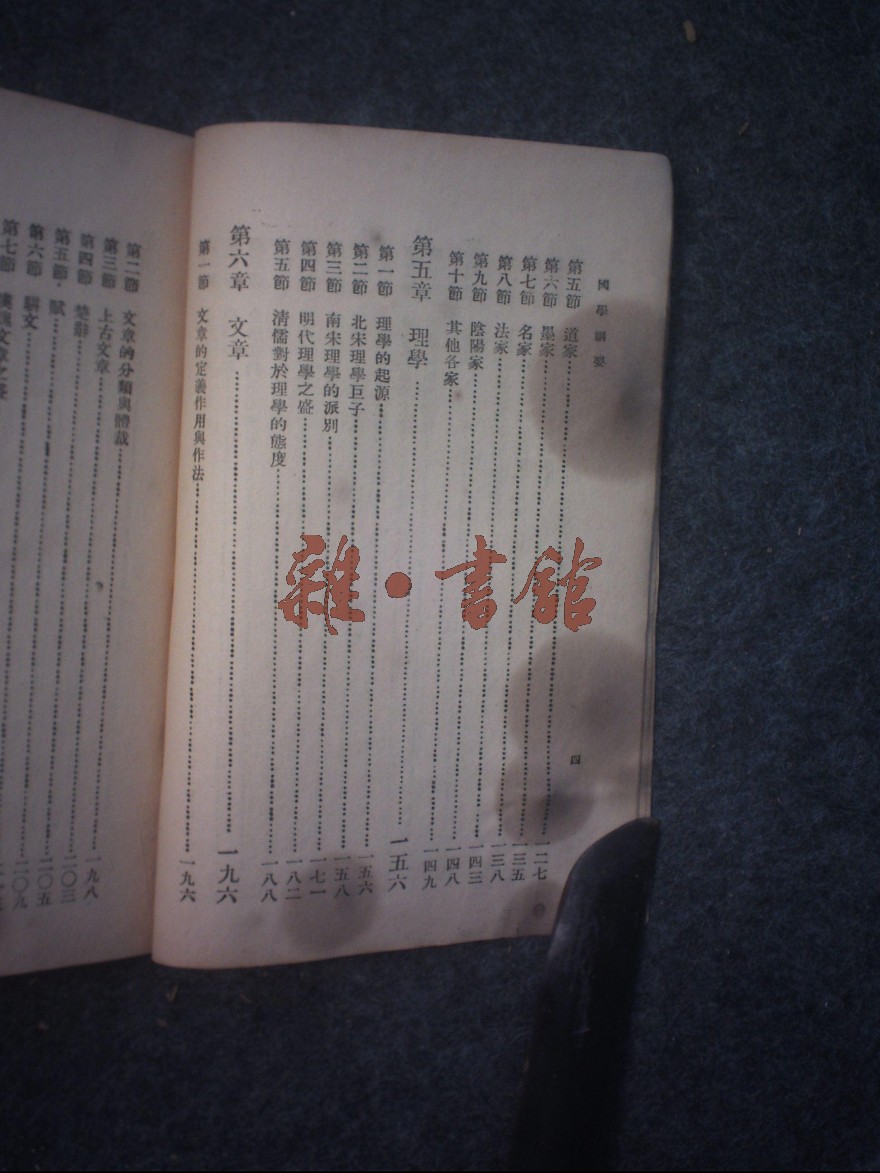 國學綱要
四
第五節 道家……一二七
第六節 墨家……一三五
第七節 名家……一三八
第八節 法家……一四三
第九節 陰陽家……一四八
第十節 其他各家……一四九
第五章 理學……一五六
第一節 理學的起源……一五六
第二節 北宋理學巨子……一五八
第三節 南宋理學的派別……一七一
第四節 明代理學之盛……一八二
第五節 清儒對於理學的態度……一八八
第六章 文章……一九六
第一節 文章的定義作用與作法……一九六
第二節 文章的分類與體裁……一九八
第三節 上古文章……二〇三
第四節 楚辭……二〇五
第五節 賦……二〇九
第六節 駢文……
第七節 文章之
雜·書館